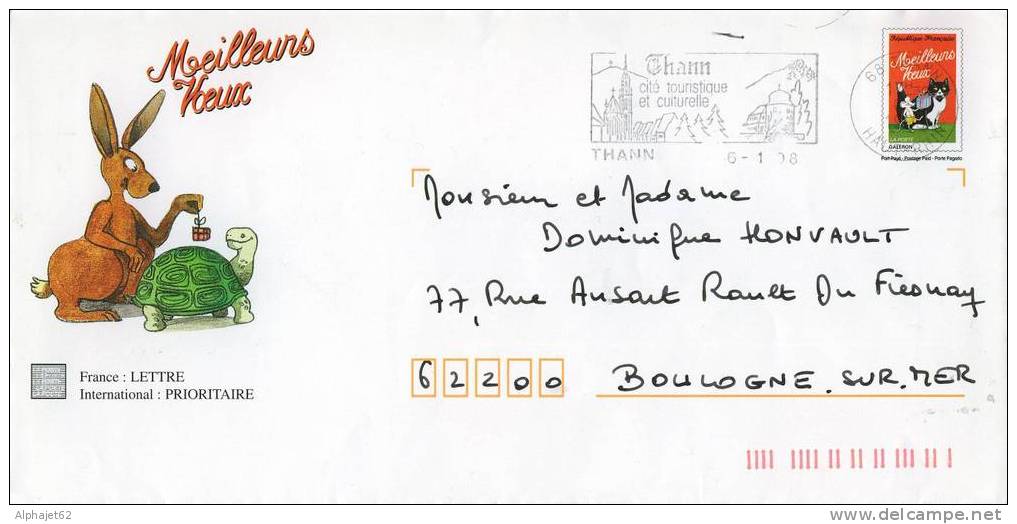 Meilleurs
Vœux
Thann
cité touristique
et culturelle
THANN 6-1 98
68
HA
République Française
Meilleurs
Vœux
LA POSTE
GALERON
Port Payé - Postage Paid - Porte Pagado
Monsieur et Madame
Dominique HONVAULT
77, Rue Ansart Rault Du Fresnay
62200 BOULOGNE.SUR.MER
France : LETTRE
International : PRIORITAIRE
Alphajet62
delcampe.net